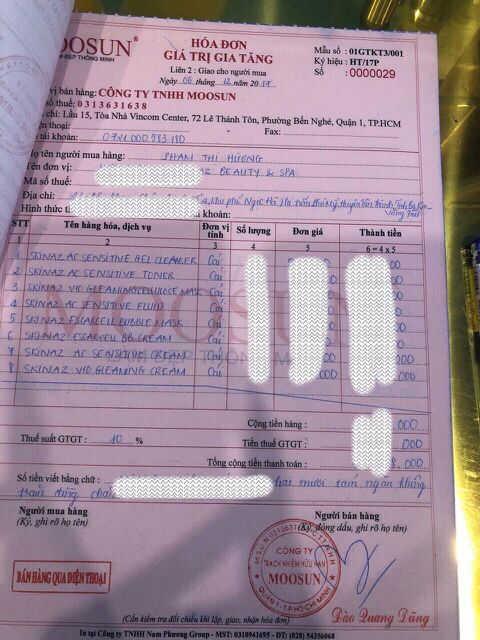 MOOSUN®
ĐẸP THÔNG MINH
HÓA ĐƠN
GIÁ TRỊ GIA TĂNG
Liên 2 : Giao cho người mua
Ngày 06 12 năm 2017
Mẫu số : 01GTKT3/001
Ký hiệu : HT/17P
Số : 0000029
vị bán hàng: CÔNG TY TNHH MOOSUN
số thuế: 0313631638
chỉ: Lầu 15, Tòa Nhà Vincom Center, 72 Lê Thánh Tôn, Phường Bến Nghé, Quận 1, TP.HCM
thoại: 0721.000.783.180 Fax:
Họ tên người mua hàng: PHAM THỊ HƯƠNG
Tên đơn vị: AZ BEAUTY & SPA
Mã số thuế:
Địa chỉ:
Hình thức khoản:
STT Tên hàng hóa, dịch vụ Đơn vị tính Số lượng Đơn giá Thành tiền
1 2 3 4 5 6 = 4 x 5
1 SKINAZ AC SENSITIVE GEL CLEANSER Cái 000
2 SKINAZ AC SENSITIVE TONER Cái 000
3 SKINAZ VIO GLEAMING CELLULOSE MASK Cái 000
4 SKINAZ AC SENSITIVE FLUID Cái 000
5 SKINAZ ESCARCELL BUBBLE MASK Cái 000
6 SKINAZ ESCARCELL BB CREAM Cái 000
7 SKINAZ AC SENSITIVE CREAM Cái 000
8 SKINAZ VIO GLEAMING CREAM Cái 000
MOOSUN
ĐẸP THÔNG MINH
Cộng tiền hàng : 000
Thuế suất GTGT : 10 % Tiền thuế GTGT : .000
Tổng cộng tiền thanh toán : 8.000
Số tiền viết bằng chữ : hai mươi tám ngàn không
trăm đồng chẵn
Người mua hàng
(Ký, ghi rõ họ tên)
Người bán hàng
(Ký, đóng dấu, ghi rõ họ tên)
BÁN HÀNG QUA ĐIỆN THOẠI
CÔNG TY
TRÁCH NHIỆM HỮU HẠN
MOOSUN
QUẬN 1 - TP HỒ CHÍ MINH
Đào Quang Dũng
(Cần kiểm tra đối chiếu khi lập, giao, nhận hóa đơn)
In tại Công ty TNHH Nam Phương Group - MST: 0310941695 - ĐT: (028) 54356068